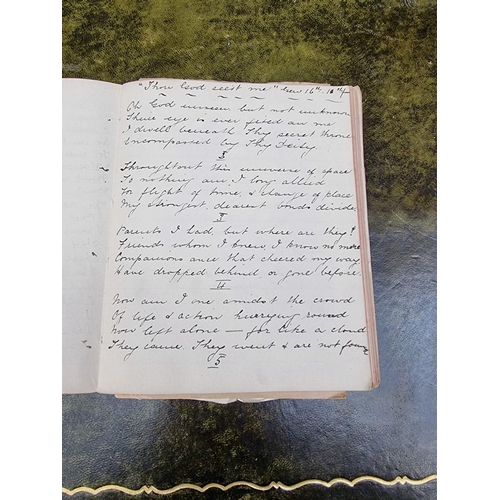 "Thou God seest me" Gen 16th. 13th v
Oh God unseen but not unknown
Thine eye is ever fixed on me
I dwell beneath Thy secret throne
Encompassed by Thy Deity
Throughout this universe of space
To nothing am I long allied
For flight of time & change of place
My strongest dearest bonds divide
Parents I had, but where are they?
Friends whom I knew I know no more
Companions once that cheered my way
Have dropped behind or gone before.
Now am I one amidst the crowd
Of life & action hurrying round
Now left alone — for like a cloud
They came. They went & are not found
5